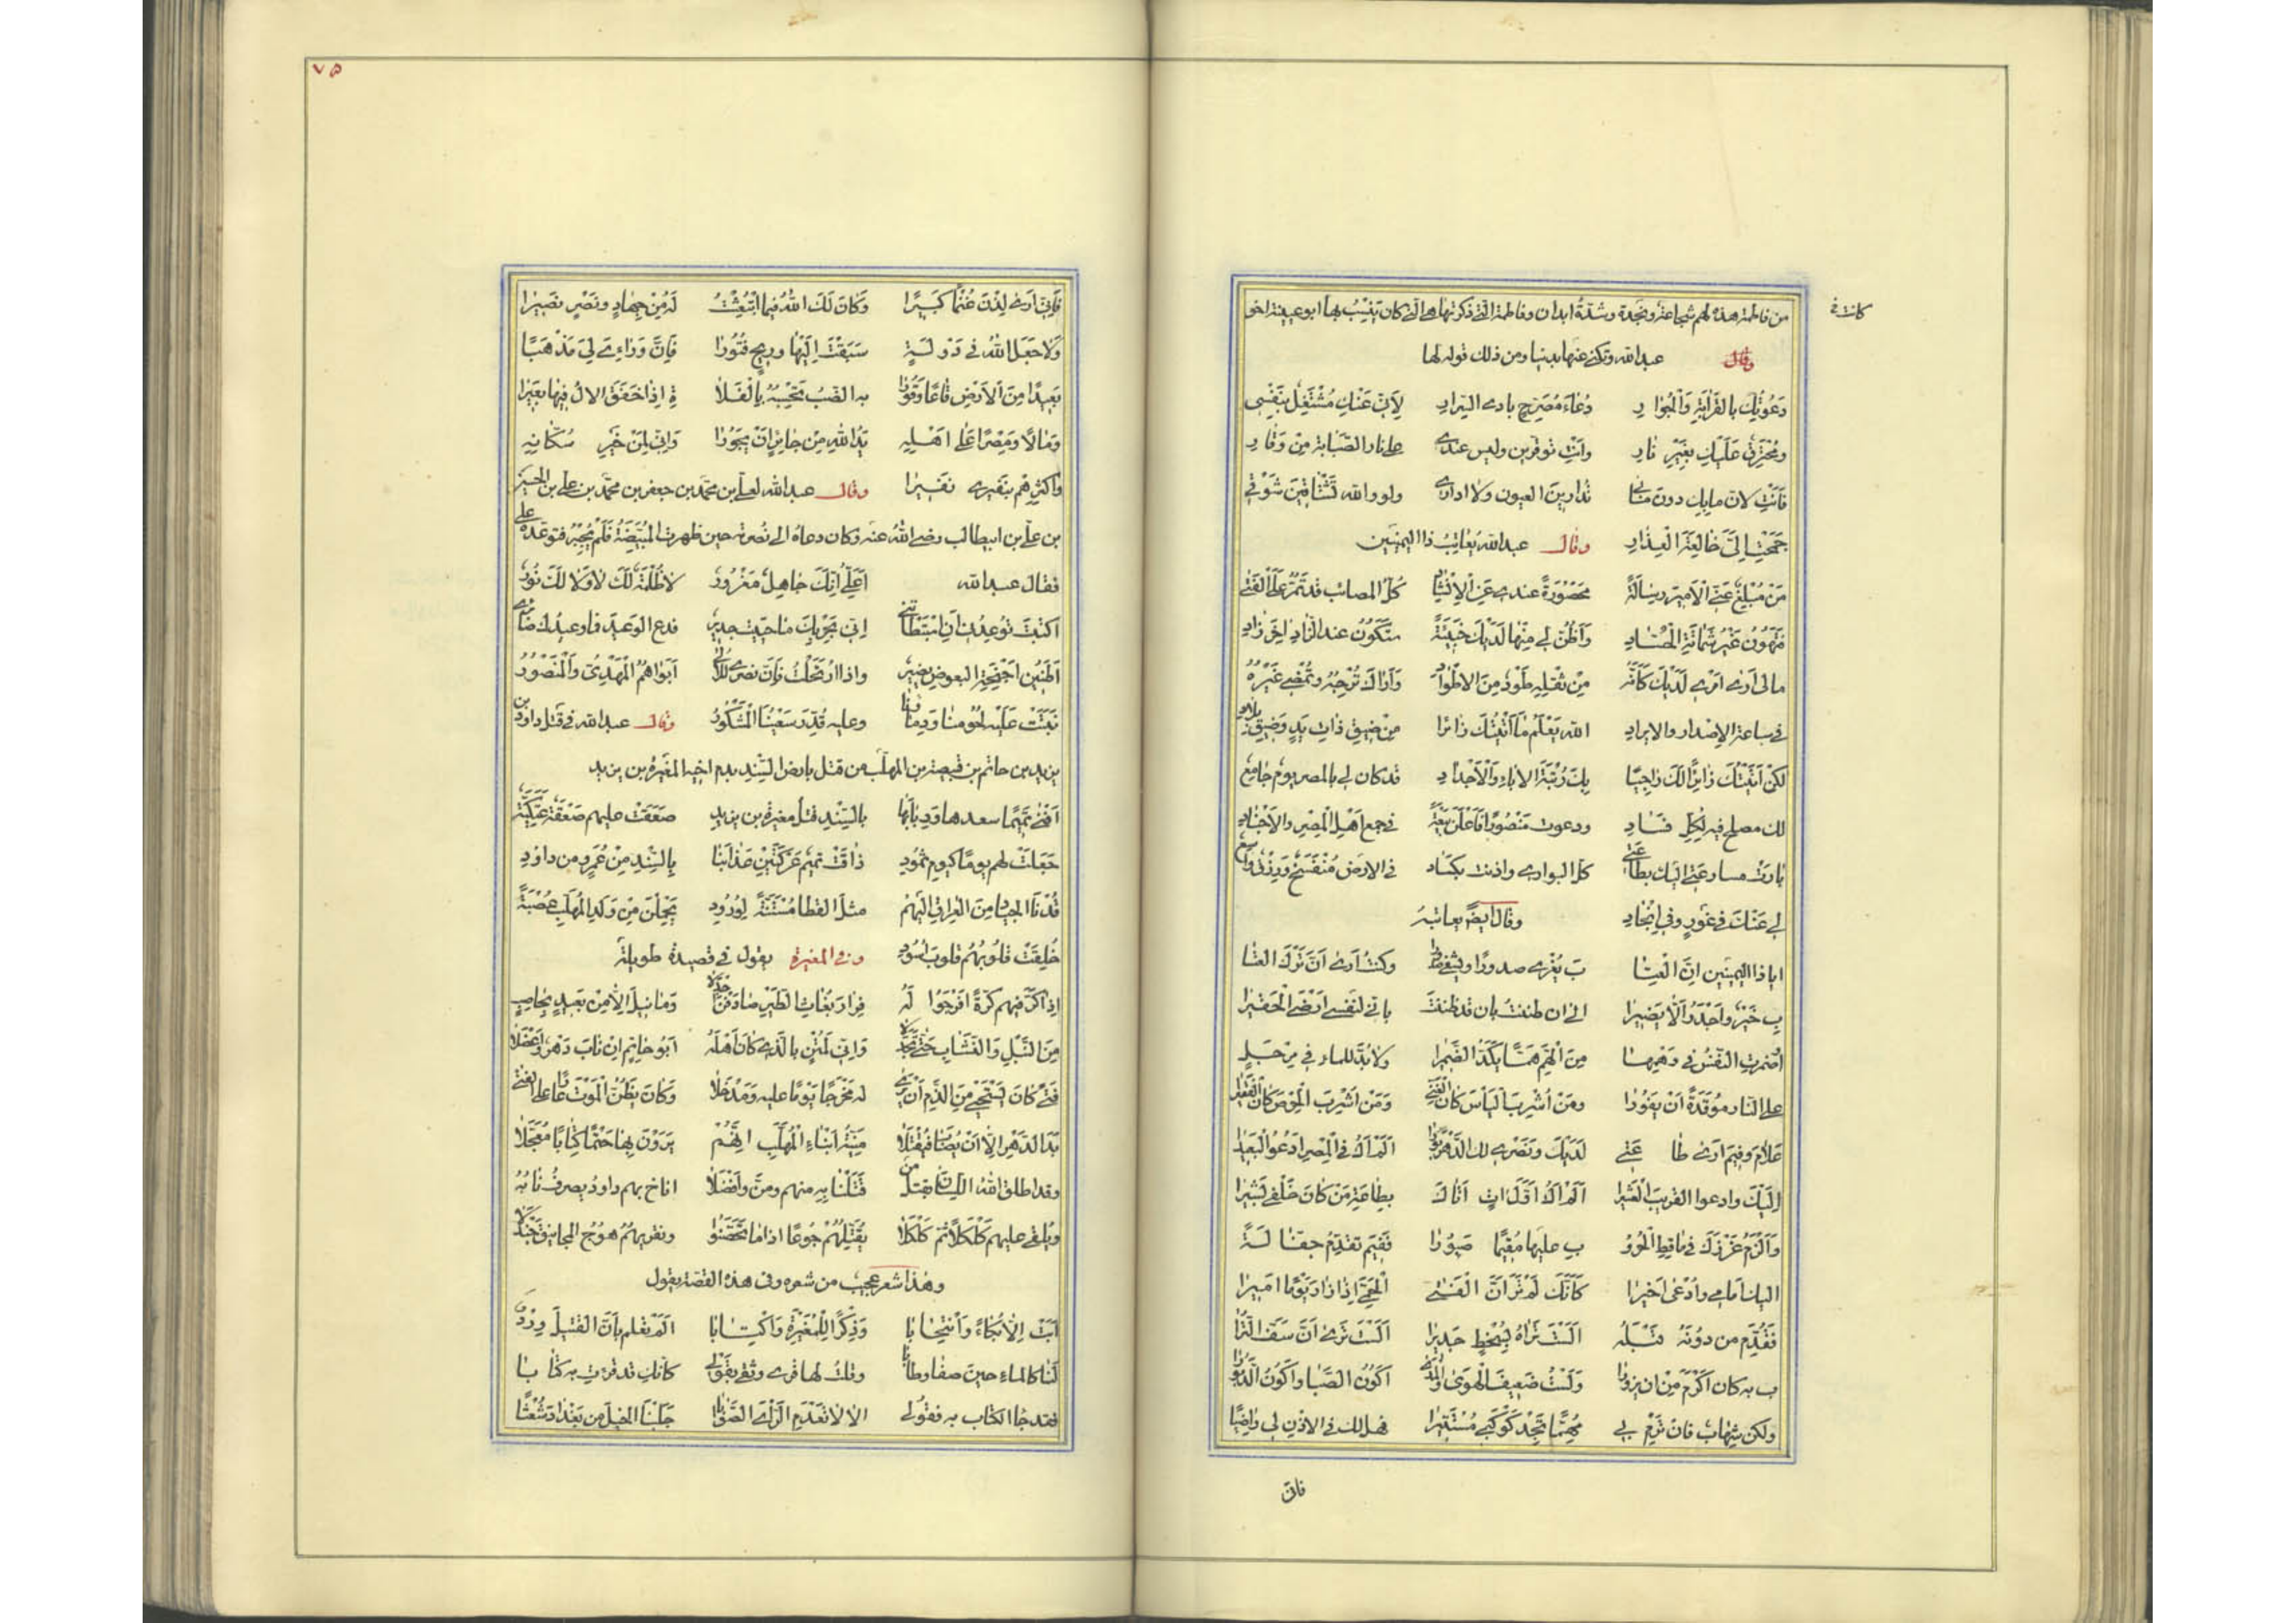 كانت في
من فاطمة هذه لهم شجاعة ونجدة وشدة ابدان وفاطمة التي ذكرتها هي التي كان ينسب بها ابو عيينة اخو
عبد الله ويكني عنها بدنيا ومن ذلك قوله لها وقال
دَعَوْتُكِ بالقَرَابَةِ وَالْجُوَارِ دُعَاءَ مُصَرِّحٍ بادي السِّرارِ لِأَنّي عَنْكِ مُشْتَغِلٌ بِنَفْسِي
ومُحْتَرِقٌ عَلَيْكِ بِغَيْرِ نَارِ وأنتِ توقرين وليس عندي على نار الصَّبَابة مِنْ وَقَارِ
فَأَنْتِ لان مابك دون مابي تدارين العيون ولا اداري ولو والله تَشْتَاقِينَ شَوْقي
جَمَحْتِ إلَيَّ خَالِعَةَ الْعِذَارِ وقال عبد الله يُعَاتِبُ ذا اليمينين
مَنْ مُبْلِغٌ عَنِّي الْأَمِيرَ رِسَالَةً مَحْصُورَةً عندي عَنِ الْإِنْشَادِ كُلُّ المصائب قد تَمُرُّ عَلَى الْفَتَى
فَتَهُونُ غَيْرَ شَمَاتَةِ الْحُسَّادِ وَأَظُنُّ لي مِنْهَا لَدَيْكَ خَبِيئَةً سَتَكُونُ عند الزادِ آخِرَ زادِ
مالي أرى أمْري لَدَيْكَ كَأَنَّهُ مِنْ ثِقْلِهِ طَوْدٌ مِنَ الاطْوَادِ وَأَرَاكَ تُرْجِيهِ وتُمْضي غَيْرَهُ
في ساعة الإصْدار والايرادِ الله يَعْلَمُ مَا أَتَيْتُكَ زائرا مِنْ ضِيقِ ذَاتِ يَدٍ وَضِيقِ بلادِ
لكنْ أتَيْتُكَ زَائِرًا لَكَ رَاجِيًا بِكَ رُتْبَةَ الاباءِ وَالْأَجْدَادِ قد كان لي بالمصر يومٌ جَامِعٌ
لك مصلح فيه لِكُلِّ فَسَادِ ودعوت مَنْصُورًا فَأَعْلَنَ بَيْعَةً في جمعِ أَهْلِ الْمِصْرِ والأَجْنَادِ
في الارض مُنْفَسَحٌ وَرِزْقٌ واسع
لي عَنْكَ في غَوْرٍ وفي إنْجَادِ وقال أيضًا يعاتبه
ايا ذا اليمينين إنَّ الْعِتَا بَ يُغْري صدورًا ويشفي صدورا وكنتُ أرى أنَّ تَرْكَ العتا
بِ خَيْرٌ وأَجْدَرُ ألَّا يَضِيرَا الى ان ظننتُ بان قد ظننتَ باني لنفسي أَرْضَى الْحَقيرا
أضمرتِ النفسُ في وَهْمِها مِنَ الْهَمِّ هَمًّا يَكُدُّ الضَّمِيرا ولا بُدَّ للماء في مِرْجَلٍ
على النار مُوقَدَةً أنْ يَفُورَا ومَنْ أُشْرِبَ الْيَأْسَ كان الْغَنِيَّ وَمَنْ أُشْرِبَ الْحِرْصَ كان الْفَقِيرا
عَلَامَ وفِيمَ أرى طا عَتي لَدَيْكَ ونَصْري لك الدَّهْرَ بُورَا ألَمْ أكُ في الْمِصْرِ أدْعُو الْبَعِيدَ
إلَيْكَ وادعوا القريبَ الْعَشِيرا ألَمْ أكُ أوّلَ آتٍ أَتَاكَ بطَاعَةِ مَنْ كانَ خَلْفي بَشِيرا
وألْزَمُ غَرْزَكَ في ماقِطِ الْحُرُو بِ عليها مُقِيمًا صَبُورَا فَفِيمَ تقدّمُ جفَّالَةً
اليك امامي وأُدْعَى أخِيرا كَأَنَّكَ لَمْ تَرَ أَنَّ الْفَتَى الْحَمِيَّ إذا زَارَ يَوْمًا أمِيرا
فَقُدِّمَ من دُونَهُ قَبْلَهُ ألَسْتَ تَرَاهُ بِسُخْطٍ جَدِيرا ألَسْتَ تَرَى أنَّ سَفَّ التُّرَا
بِ به كان أكْرَمَ مِنْ ان يزورا ولَسْتُ ضَعِيفَ الْهَوَى والمدى أكون الصَّبَا وأكُونُ الدَّبُورَا
ولكن شِهَابٌ فان تَرْمِ بي مُهِمًّا تَجِدْ كَوْكَبي مُسْتَنِيرا فهل لك في الاذن لي رَاضِيًا
فانّي
٧٥
فَإِنّي أَرَى الْإِذْنَ غُنْمًا كَبِيرًا وَكَانَ لَكَ اللهُ فيما ابْتُعِثْتَ لَهُ مِنْ جِهَادٍ ونَصْرٍ نَصِيرَا
وَلَا جَعَلَ اللهُ في دَوْلَةٍ سَبَقْتَ إِلَيْهَا وريحٍ فُتُورًا فَإنَّ وَرَاءِيَ لي مَذْهَبًا
بَعِيدًا مِنَ الأرْضِ قَاعًا وَقُورًا به الضَّبُّ تَحْسِبُهُ بالْفَلَا ةِ إذا خَفَقَ الآلُ فيها بَعِيرَا
وَمَالًا ومِصْرًا عَلَى أهْلِهِ يَدُ اللهِ مِنْ جائرٍ أنْ يَجُورَا وَانّي لمِنْ خَيْرِ سُكّانِهِ
واكْثَرِهِمْ بنَفِيري نَفِيرا وقال عبد الله لعلي بن محمد بن جعفر بن محمد بن علي بن الحسين
بن علي بن ابيطالب رضي الله عنه وكان دعاه الى نُصرته حين ظهرت المُبَيِّضَةُ فَلَمْ يُجِبْهُ فتوعّده علي
فقال عبد الله أعَلِيُّ إنّكَ جَاهِلٌ مَغْرُورٌ لَا ظُلْمَةٌ لَكَ لَا وَلَا لَكَ نُورُ
أكتبتَ تُوعِدُني أنِ اسْتَبْطَأْتَني إنّي بحَرْبِكَ ما حَيِيتُ جديرُ فدعِ الوَعِيدَ فما وعيدُك ضائري
أطَنِينُ أجْنِحَةِ البعوضِ يَضِيرُ واذا ارْتَحَلْتُ فَإنَّ نصري للألى أبَوَاهُمُ الْمَهْدِيُّ وَالْمَنْصُورُ
نَبَتَتْ عَلَيْهِ لُحُومُنَا وَدِمَاؤُنا وعليه قُدِّرَ سَعْيُنَا الْمَشْكُورُ وقال عبد الله في قتل داود بن
يزيد بن حاتم بن قبيصة بن المهلّب من قتل بارض السّند بدم اخيه المغيرة بن يزيد
أفْنَى تَمِيمًا سعدها ورِبابُها بالسّندِ قتلُ مغيرة بن يزيدِ صَعَقَتْ عليهم صَعْقَةٌ عَتَكِيَّةٌ
جَعَلَتْ لهم يومًا كيومِ ثمُودِ ذاقَتْ تميم عَرْكَتَيْنِ عَذَابَنَا بالسِّنْدِ مِنْ عُمَرٍ ومن داوُدِ
قُدْنَا الجيادَ مِنَ الْعِراقِ الَيْهُم مثلَ القطا مُسْتَنَّةً لِوُرُودِ يَحْمِلْنَ مِنْ وَلَدِ الْمُهَلَّبِ عُصْبَةً
خُلِقَتْ قُلُوبُهُمُ قلوبَ أُسُودِ وفي المغيرة يقول في قصيدة طويلة
إذا كَرَّ فيهم كَرَّةً أفْرَجُوا لَهُ فِرَارَ بُغَاثِ الطَّيْرِ صَادَفْنَ أجْدَلَا وَمَا نِيلَ إلّا مِنْ بَعِيدٍ بحَاصِبٍ
مِنَ النَّبْلِ وَالنُّشَّابِ حَتَّى تَجَدَّلَا وَإنّي لَمُثْنٍ بالّذي كان أهْلَهُ أبو حَاتِمٍ إنْ نَابَ دَهْرٌ وأعْضَلَا
فَتًى كان يَسْتَحْيي مِنَ الذَّمِّ أنْ يَرَى له مَخْرَجًا يَوْمًا عليه وَمَدْخَلَا وَكَانَ يَظُنُّ الْمَوْتَ عارًا على الفتى
يَدَ الدّهْرِ إلّا أنْ يُصَابَ فَيُقْتَلَا مَنِيَّةُ أبْنَاءِ الْمُهَلَّبِ إنَّهُمْ يَرَوْنَ بها حَتْمًا كِتَابًا مُعَجَّلَا
وقد اطلق اللهُ اللِّسَانَ بقتلِ مَن قَتَلْنَا بِهِ منهم ومَنَّ وأفْضَلَا اناخ بهم داودُ يصرفُ نَابَهُ
ويُلقي عليهم كَلْكَلًا ثُمَّ كَلْكَلَا يُقَتِّلُهُمْ جُوعًا اذا ما تَحَصَّنُوا وتقريهمُ هُوجُ المجانيقِ جَنْدَلا
وهذا شعر عجيب من شعره وفي هذه القصّة يقول
أبَتْ إلّا بُكَاءً وَانْتِحَابَا وَذِكْرًا لِلْمُغِيرَةِ وَاكْتِئَابَا ألَمْ تعلم بأنَّ القَتْلَ وِرْدٌ
لَنَا كالماءِ حينَ صَفَا وطابا وقلتُ لها قِري وثقي بقَوْلي كانّكِ قد قرأتِ به كتابا
فقد جا الكتاب به فقولي الا لا تَعْدَمِ الرَّأْيَ الصَّوابا جَلَبْنَا الخيلَ من بَغْدَادَ شُعْثًا